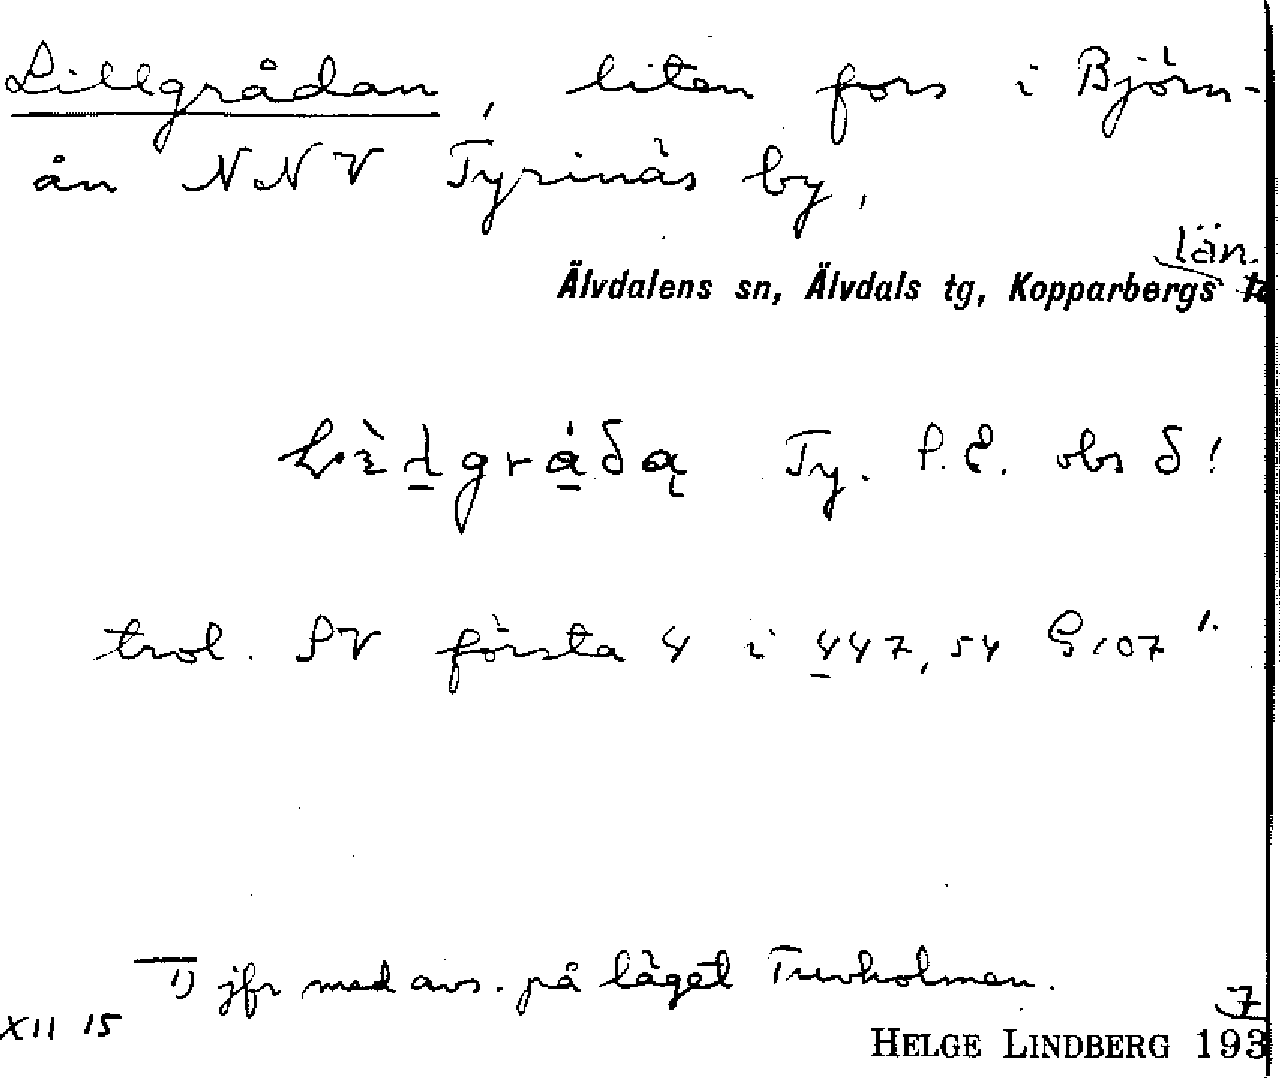 Lillgrådan, liten fors i Björn-
ån NNV Tyrinäs by,
län.
Älvdalens sn, Älvdals tg, Kopparbergs
Ty. P.E. obs δ!
trol. SV första 4 i 447,54 G107 1.
1) jfr med avs. på läget Truvholmen.
XII 15
HELGE LINDBERG 1937